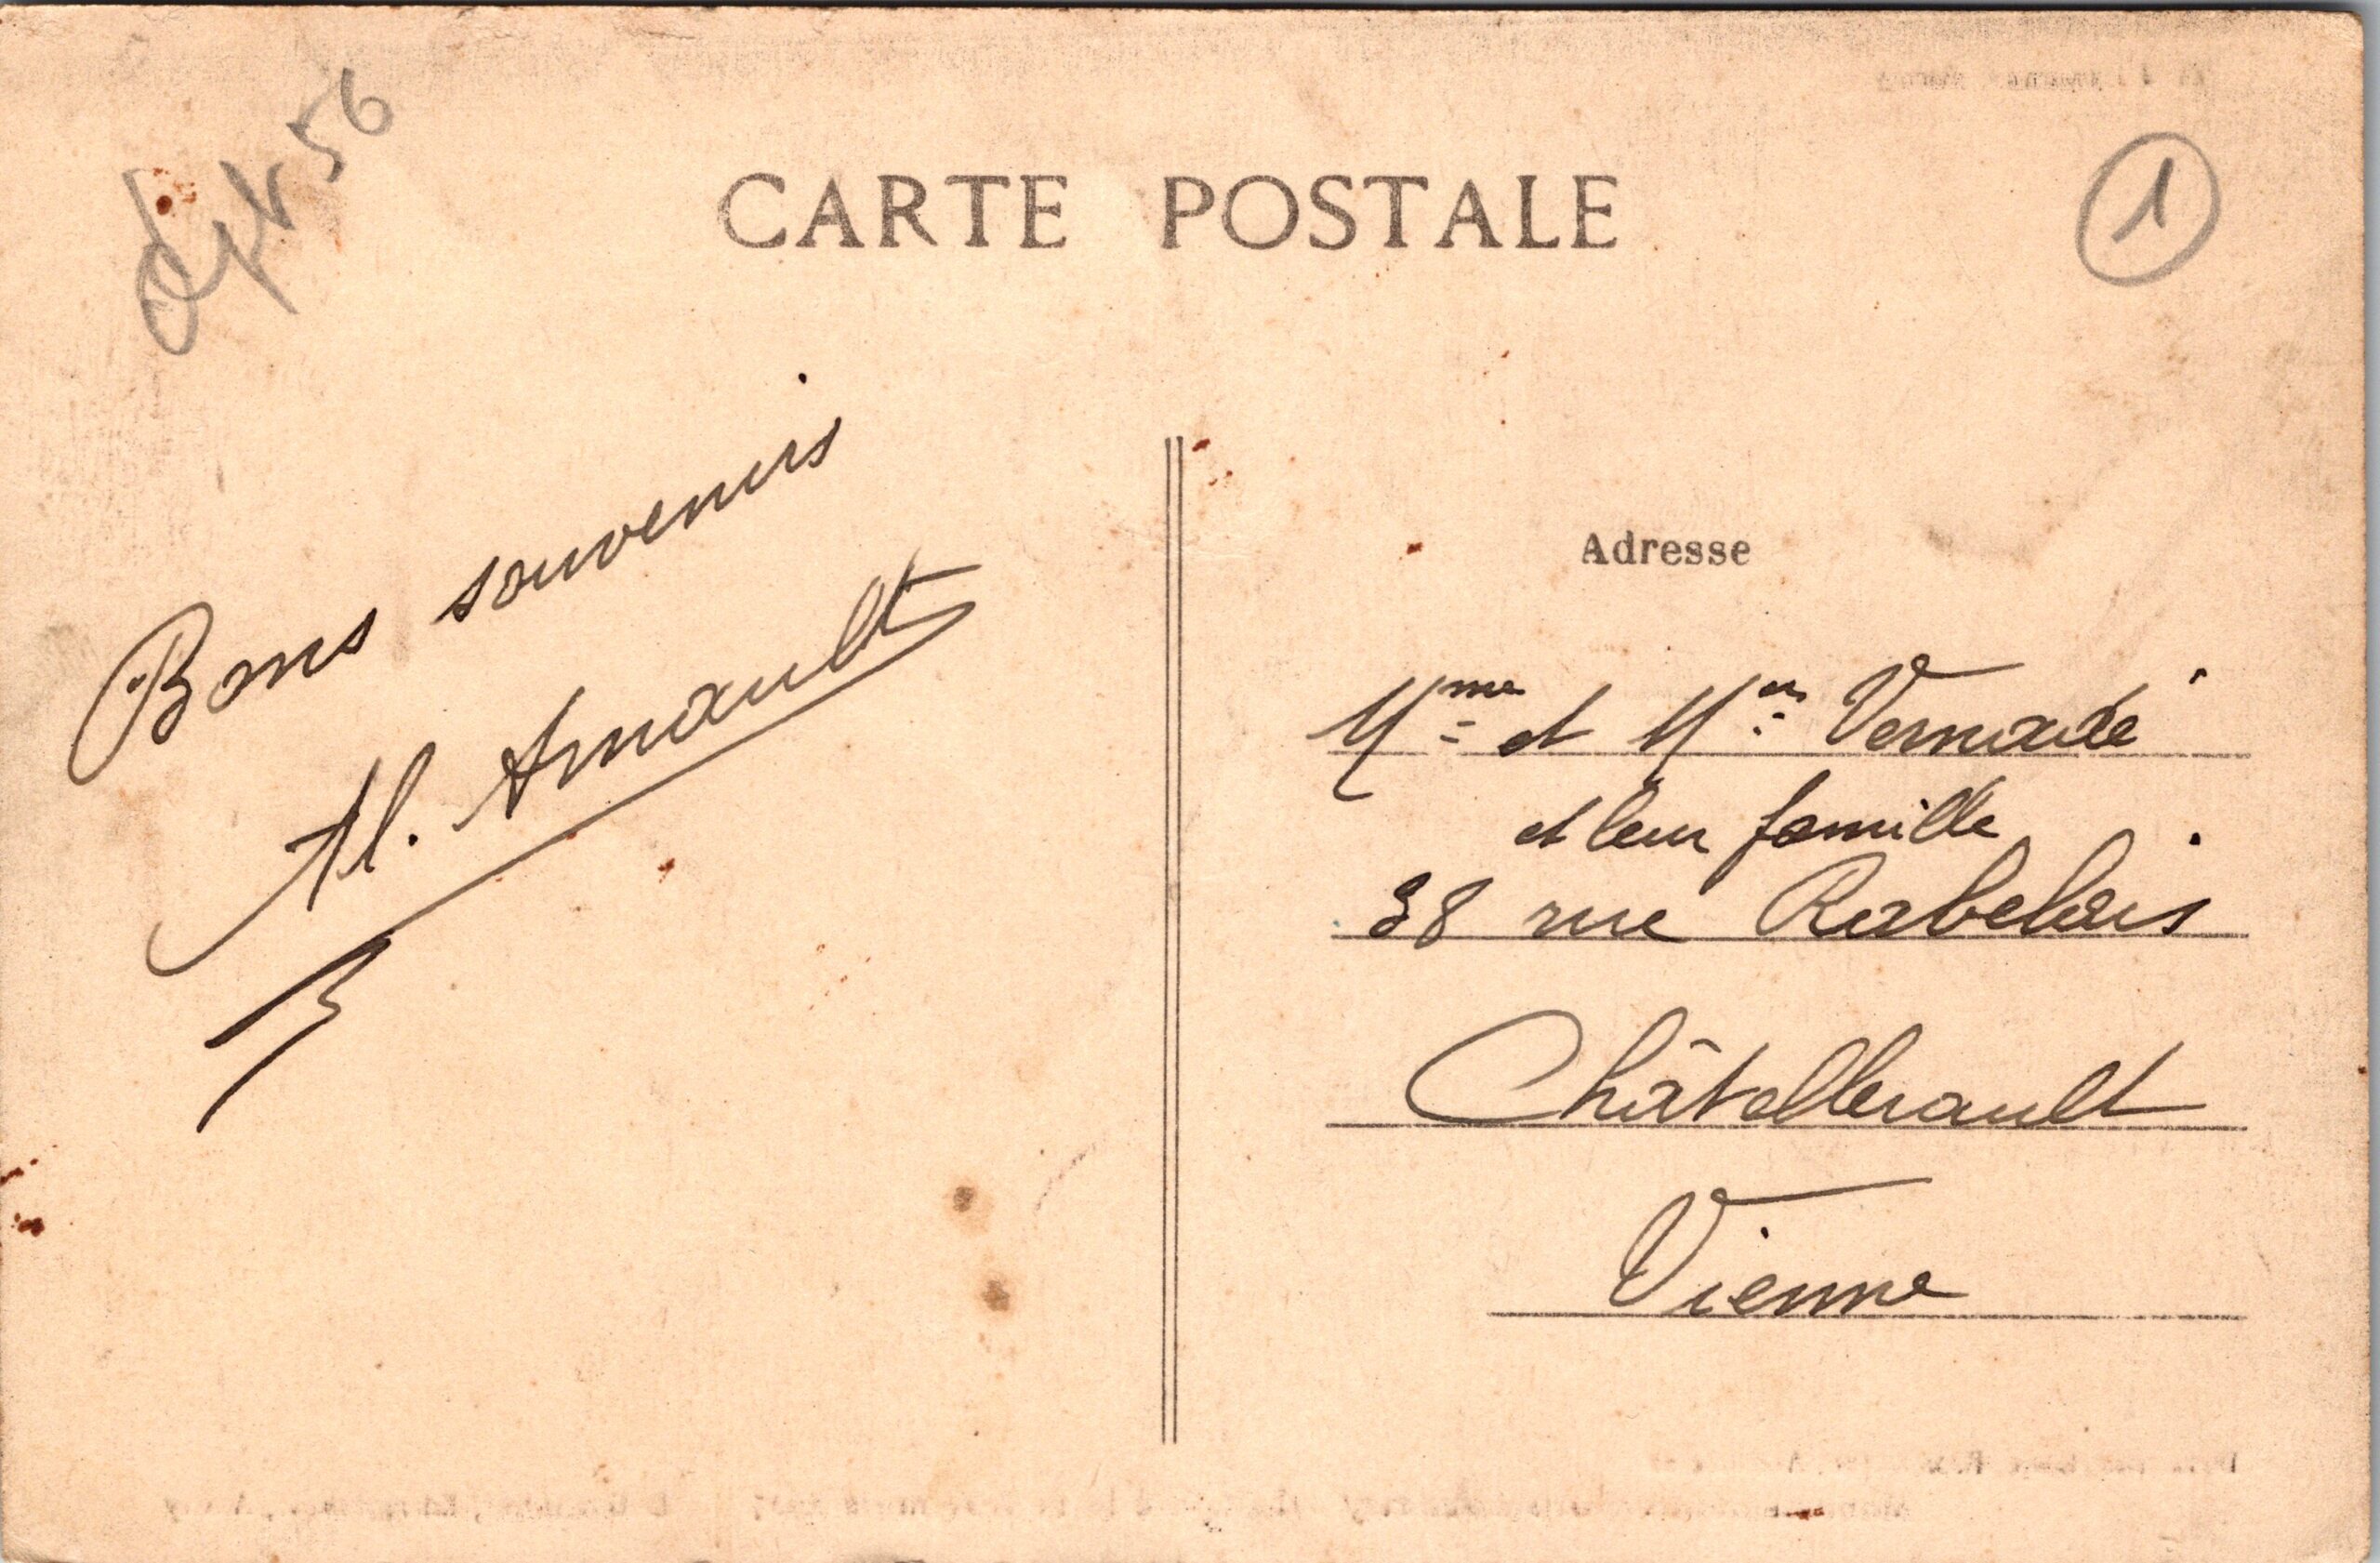 Dpt 56
CARTE POSTALE
1
Bons souvenirs
Al. Arnault
Adresse
Mme et Mr Vernadé
et leur famille
38 rue Rabelais
Châtellerault
Vienne